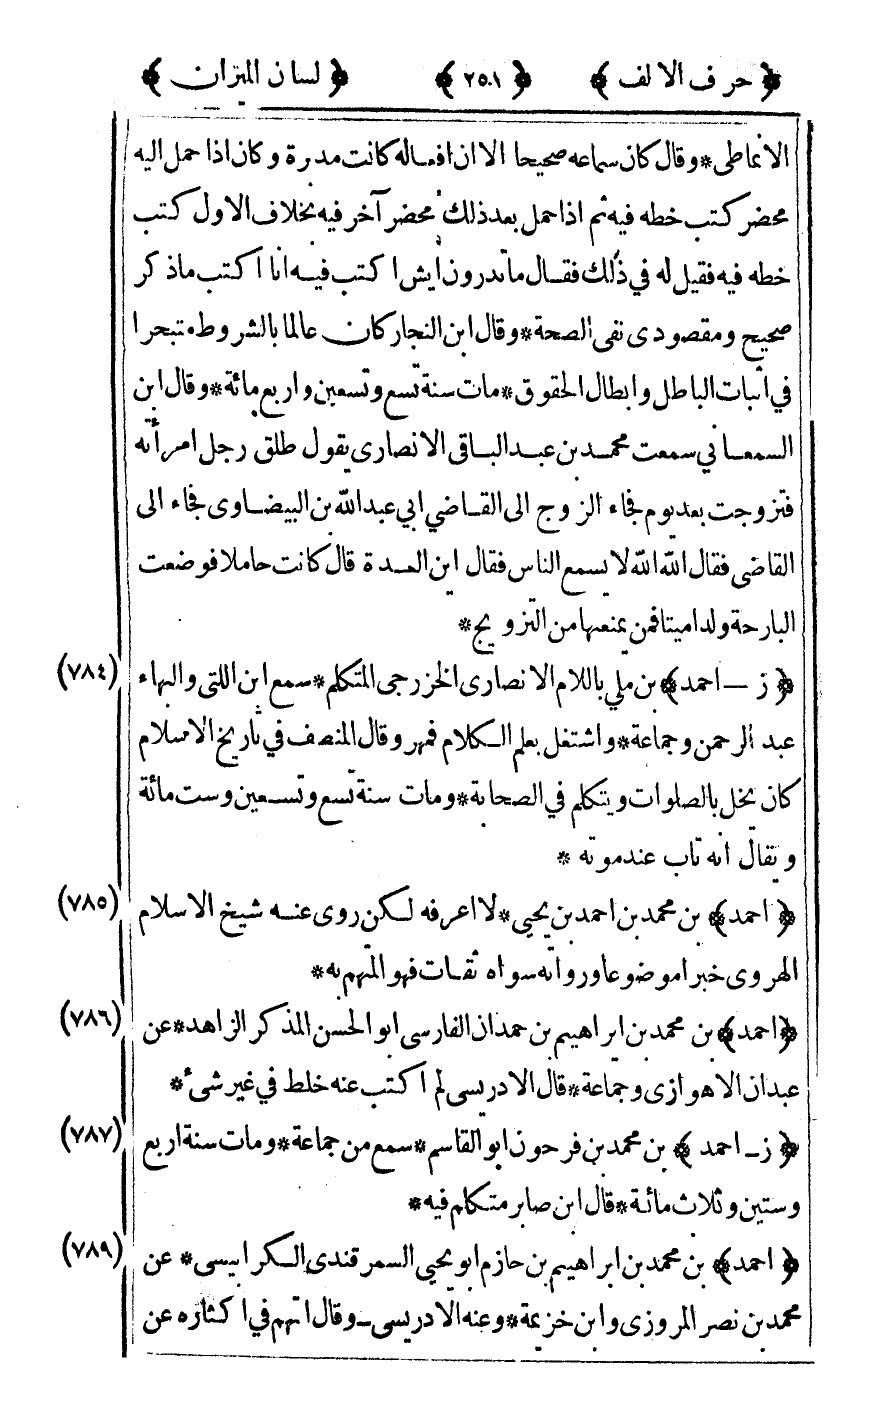 ﴿ حرف الالف ﴾ ﴿ ٢٥٠١ ﴾ ﴿ لسان الميزان ﴾
الانماطى * وقال كان سماعه صحيحا الا ان افعاله كانت مدبرة وكان اذا حمل اليه
محضر كتب خطه فيه ثم اذا حمل بعد ذلك محضر آخر فيه بخلاف الاول كتب
خطه فيه فقيل له في ذلك فقال ما تدرون ايش اكتب فيه انا اكتب ما ذكر
صحيح ومقصودى نفى الصحة * وقال ابن النجار كان عالما بالشروط متبحرا
في اثبات الباطل وابطال الحقوق * مات سنة تسع وتسعين واربع مائة * وقال ابن
السمعانى سمعت محمد بن عبد الباقى الانصارى يقول طلق رجل امرأته
فتزوجت بعد يوم فجاء الزوج الى القاضي ابي عبد الله بن البيضاوى فجاء الى
القاضى فقال الله الله لا يسمع الناس فقال اين العدة قال كانت حاملا فوضعت
البارحة ولدا ميتا فمن يمنعها من التزويج *
(٧٨٤) ﴿ ز ـ احمد ﴾ بن ملي باللام الانصارى الخزرجى المتكلم * سمع ابن اللتى والبهاء
عبد الرحمن وجماعة * واشتغل بعلم الكلام فمهر وقال المنصف في تاريخ الاسلام
كان يخل بالصلوات ويتكلم في الصحابة * ومات سنة تسع وتسعين وست مائة
ويقال انه تاب عند موته *
(٧٨٥) ﴿ احمد ﴾ بن محمد بن احمد بن يحيى * لا اعرفه لكن روى عنه شيخ الاسلام
الهروى خبرا موضوعا ورواته سواه ثقات فهو المتهم به *
(٧٨٦) ﴿ احمد ﴾ بن محمد بن ابراهيم بن حمدان الفارسى ابو الحسن المذكر الزاهد * عن
عبدان الاهوازى وجماعة * قال الادريسى لم اكتب عنه خلط في غير شىء *
(٧٨٧) ﴿ ز ـ احمد ﴾ بن محمد بن فرحون ابو القاسم * سمع من جماعة * ومات سنة اربع
وستين وثلاث مائة * قال ابن صابر متكلم فيه *
(٧٨٩) ﴿ احمد ﴾ بن محمد بن ابراهيم بن حازم ابو يحيى السمرقندى الكرابيسى * عن
محمد بن نصر المروزى وابن خزيمة * وعنه الادريسى ـ وقال اتهم في اكثاره عن